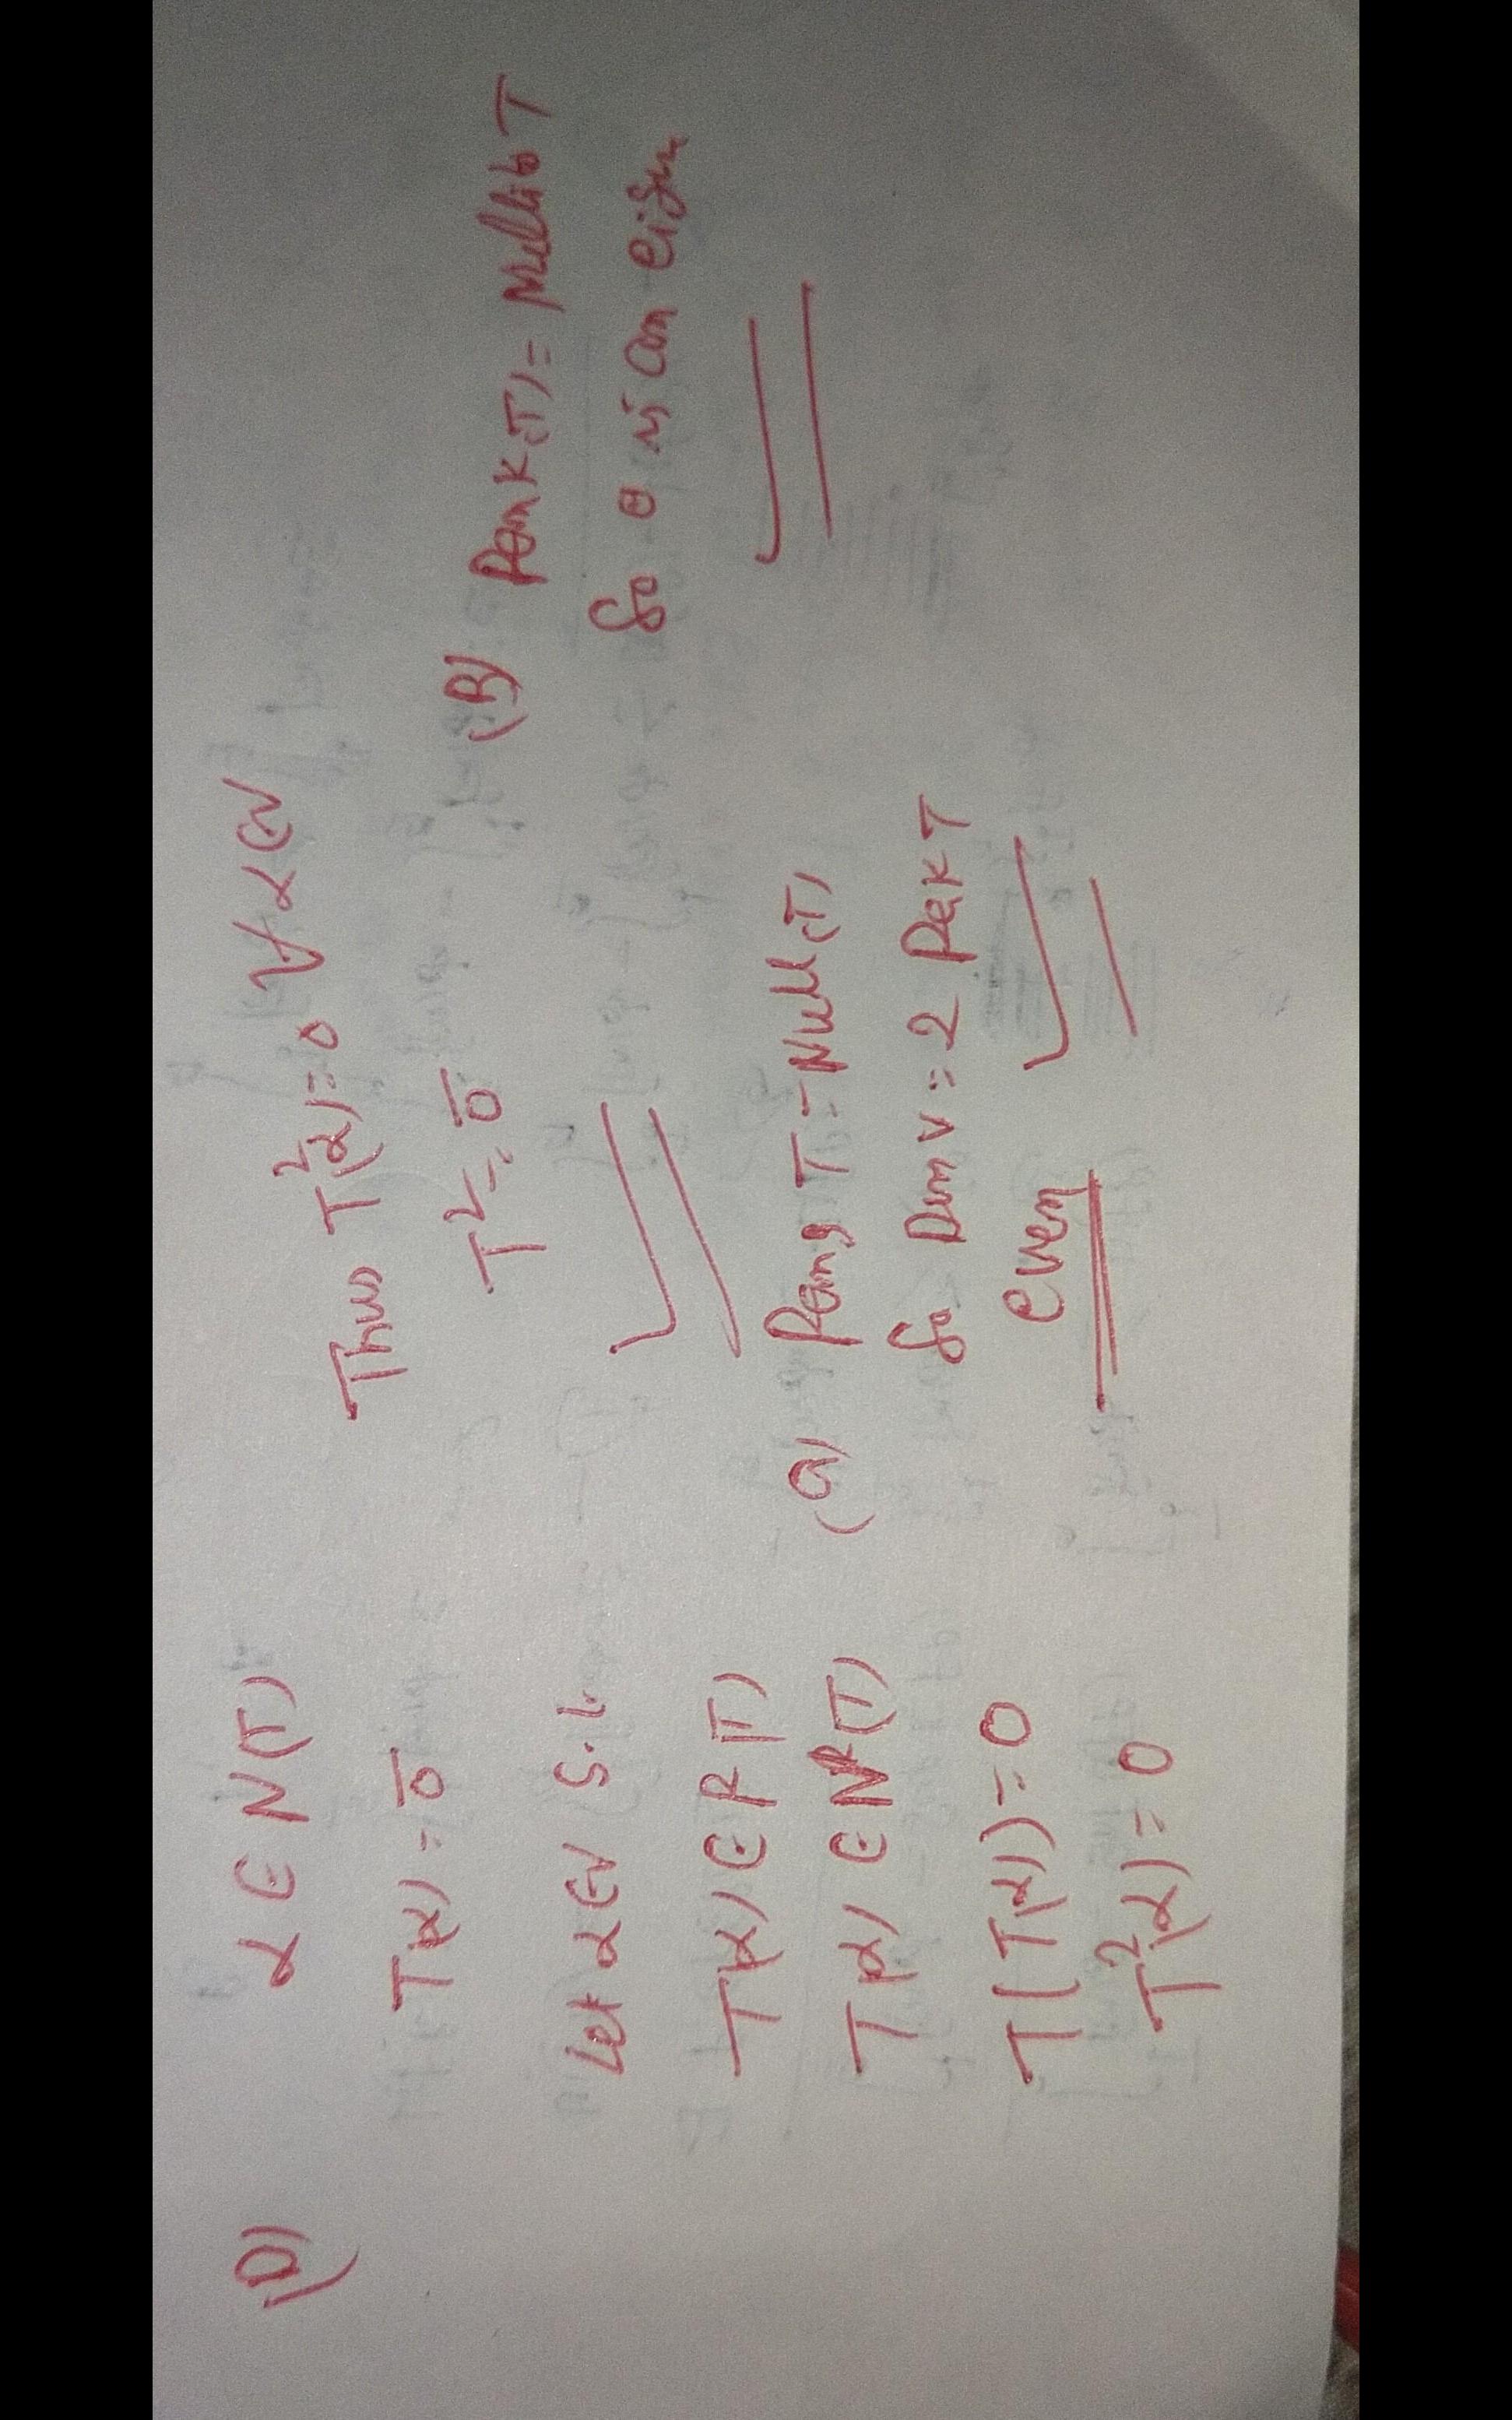 (D) α ∈ N(T)
T(α) = 0̅
Let α ∈ V s.t.
T(α) ∈ R(T)
T(α) ∈ N(T)
T(T(α)) = 0
T²(α) = 0
Thus T²(α) = 0 ∀ α ∈ V
T² = 0̅
(a) Rang T = Null(T)
So Dim V = 2 Rank T
even
(B) Rank(T) = Nullity T
So 0 is an eigen